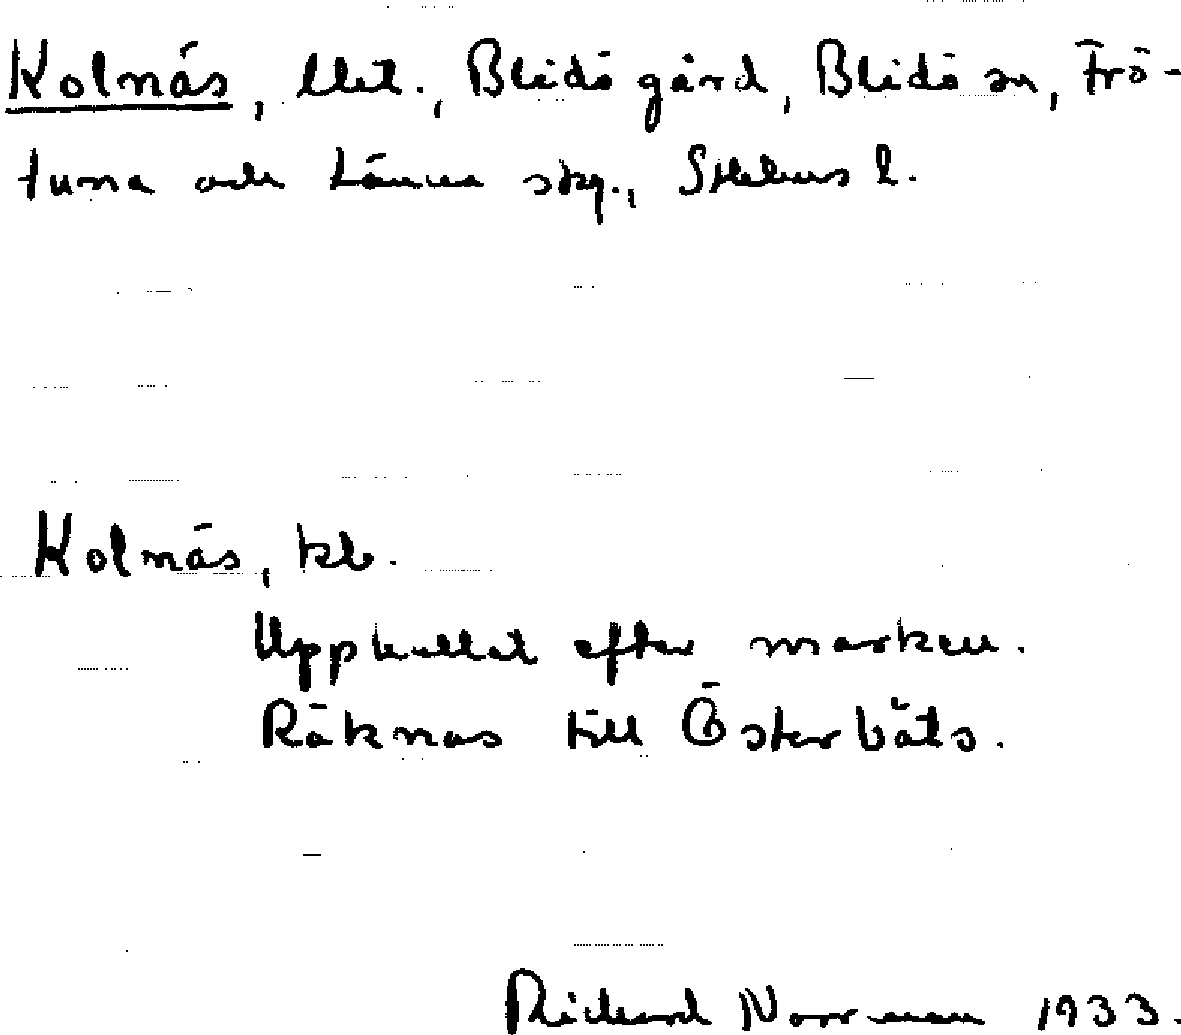 Kolnäs, llet., Blidö gård, Blidö sn, Frö-
tuna och Länna skg., Sthlms l.
Kolnäs, kb.
Uppkallat efter marken.
Räknas till Österbåts.
Rickard Norrman 1933.